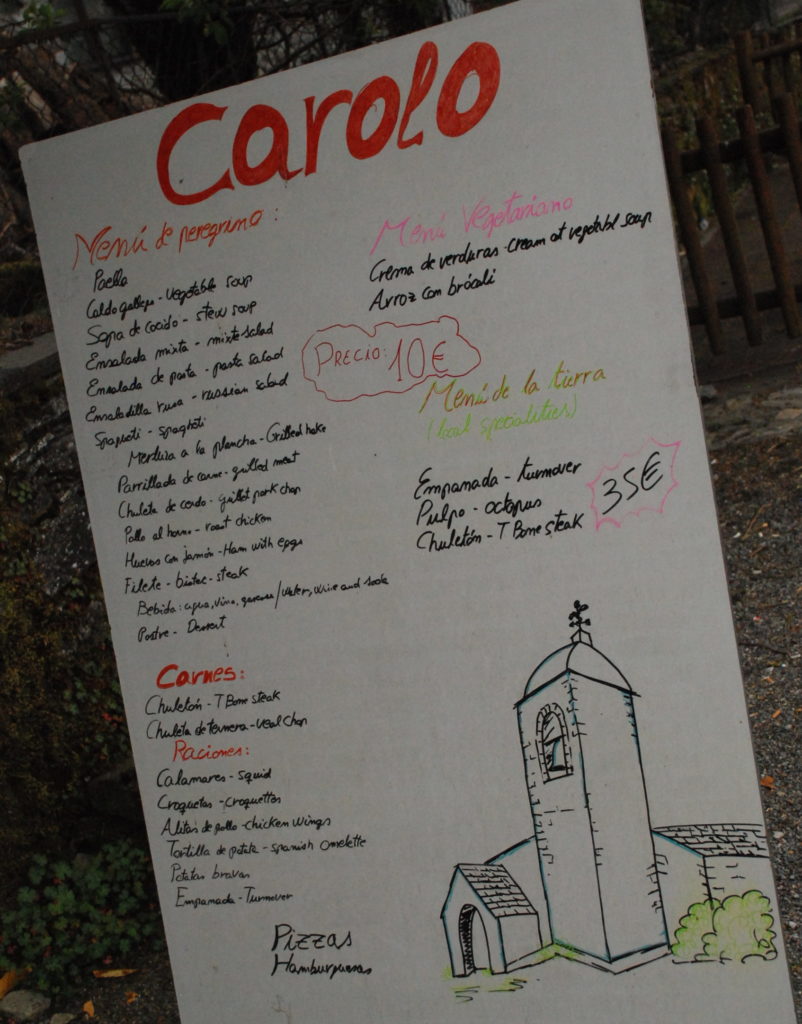 Carolo
Menú de peregrino:
Paella
Caldo gallego - vegetable soup
Sopa de cocido - stew soup
Ensalada mixta - mixte salad
Ensalada de pasta - pasta salad
Ensaladilla rusa - russian salad
Spagueti - spaghoti
Merluza a la plancha - Grilled hake
Parrillada de carne - grilled meat
Chuleta de cerdo - grillet pork chop
Pollo al horno - roast chicken
Huevos con jamón - Ham with eggs
Filete - bistec - steak
Bebida: agua, vino, gaseosa / Water, wine and soda
Postre - Dessert
Carnes:
Chuletón - T Bone steak
Chuleta de ternera - veal chop
Raciones:
Calamares - squid
Croquetas - croquettes
Alitas de pollo - chicken wings
Tortilla de patata - spanish omelette
Patatas bravas
Empanada - Turnover
Pizzas
Hamburguesas
Menú Vegetariano
Crema de verduras - cream of vegetabl soup
Arroz con brócoli
Precio: 10€
Menú de la tierra
(local specialities)
Empanada - turnover
Pulpo - octopus
Chuletón - T Bone steak
35€